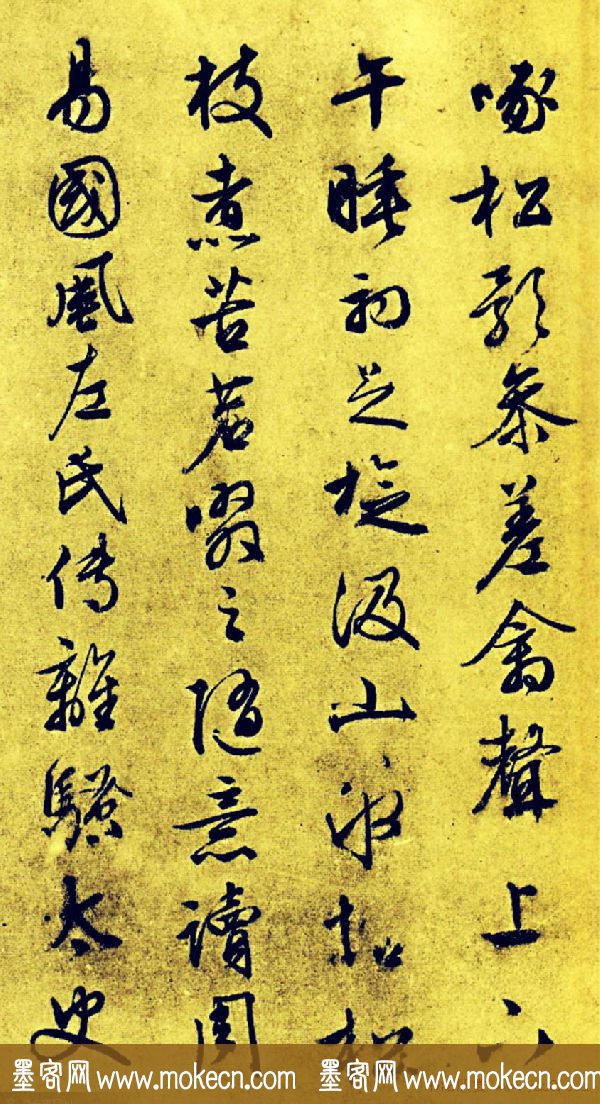 啄松影參差禽聲上下
午睡初足旋汲山泉拾松
枝煮苦茗啜之隨意讀周
易國風左氏传離騷太史
墨客网 www.mokecn.com 墨客网 www.mokecn.com